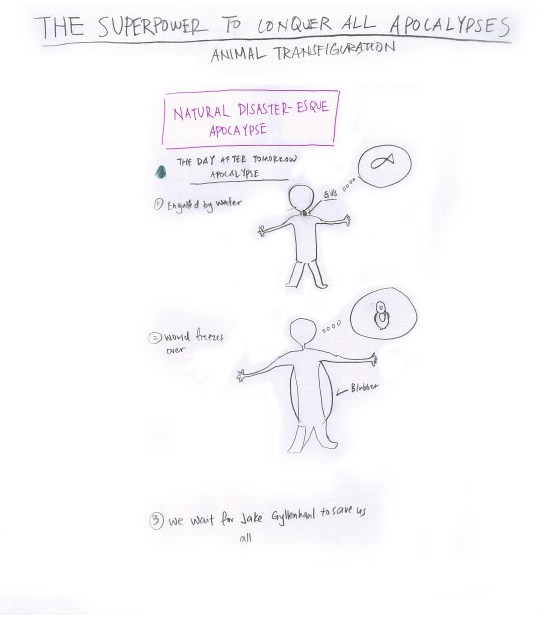 THE SUPERPOWER TO CONQUER ALL APOCALYPSES
ANIMAL TRANSFIGURATION
NATURAL DISASTER-ESQUE
APOCAYPSE
THE DAY AFTER TOMORROW
APOCALYPSE
① Engulfed by water
Gills
② World freezes
over
Blubber
③ We wait for Jake Gyllenhaal to save us
all